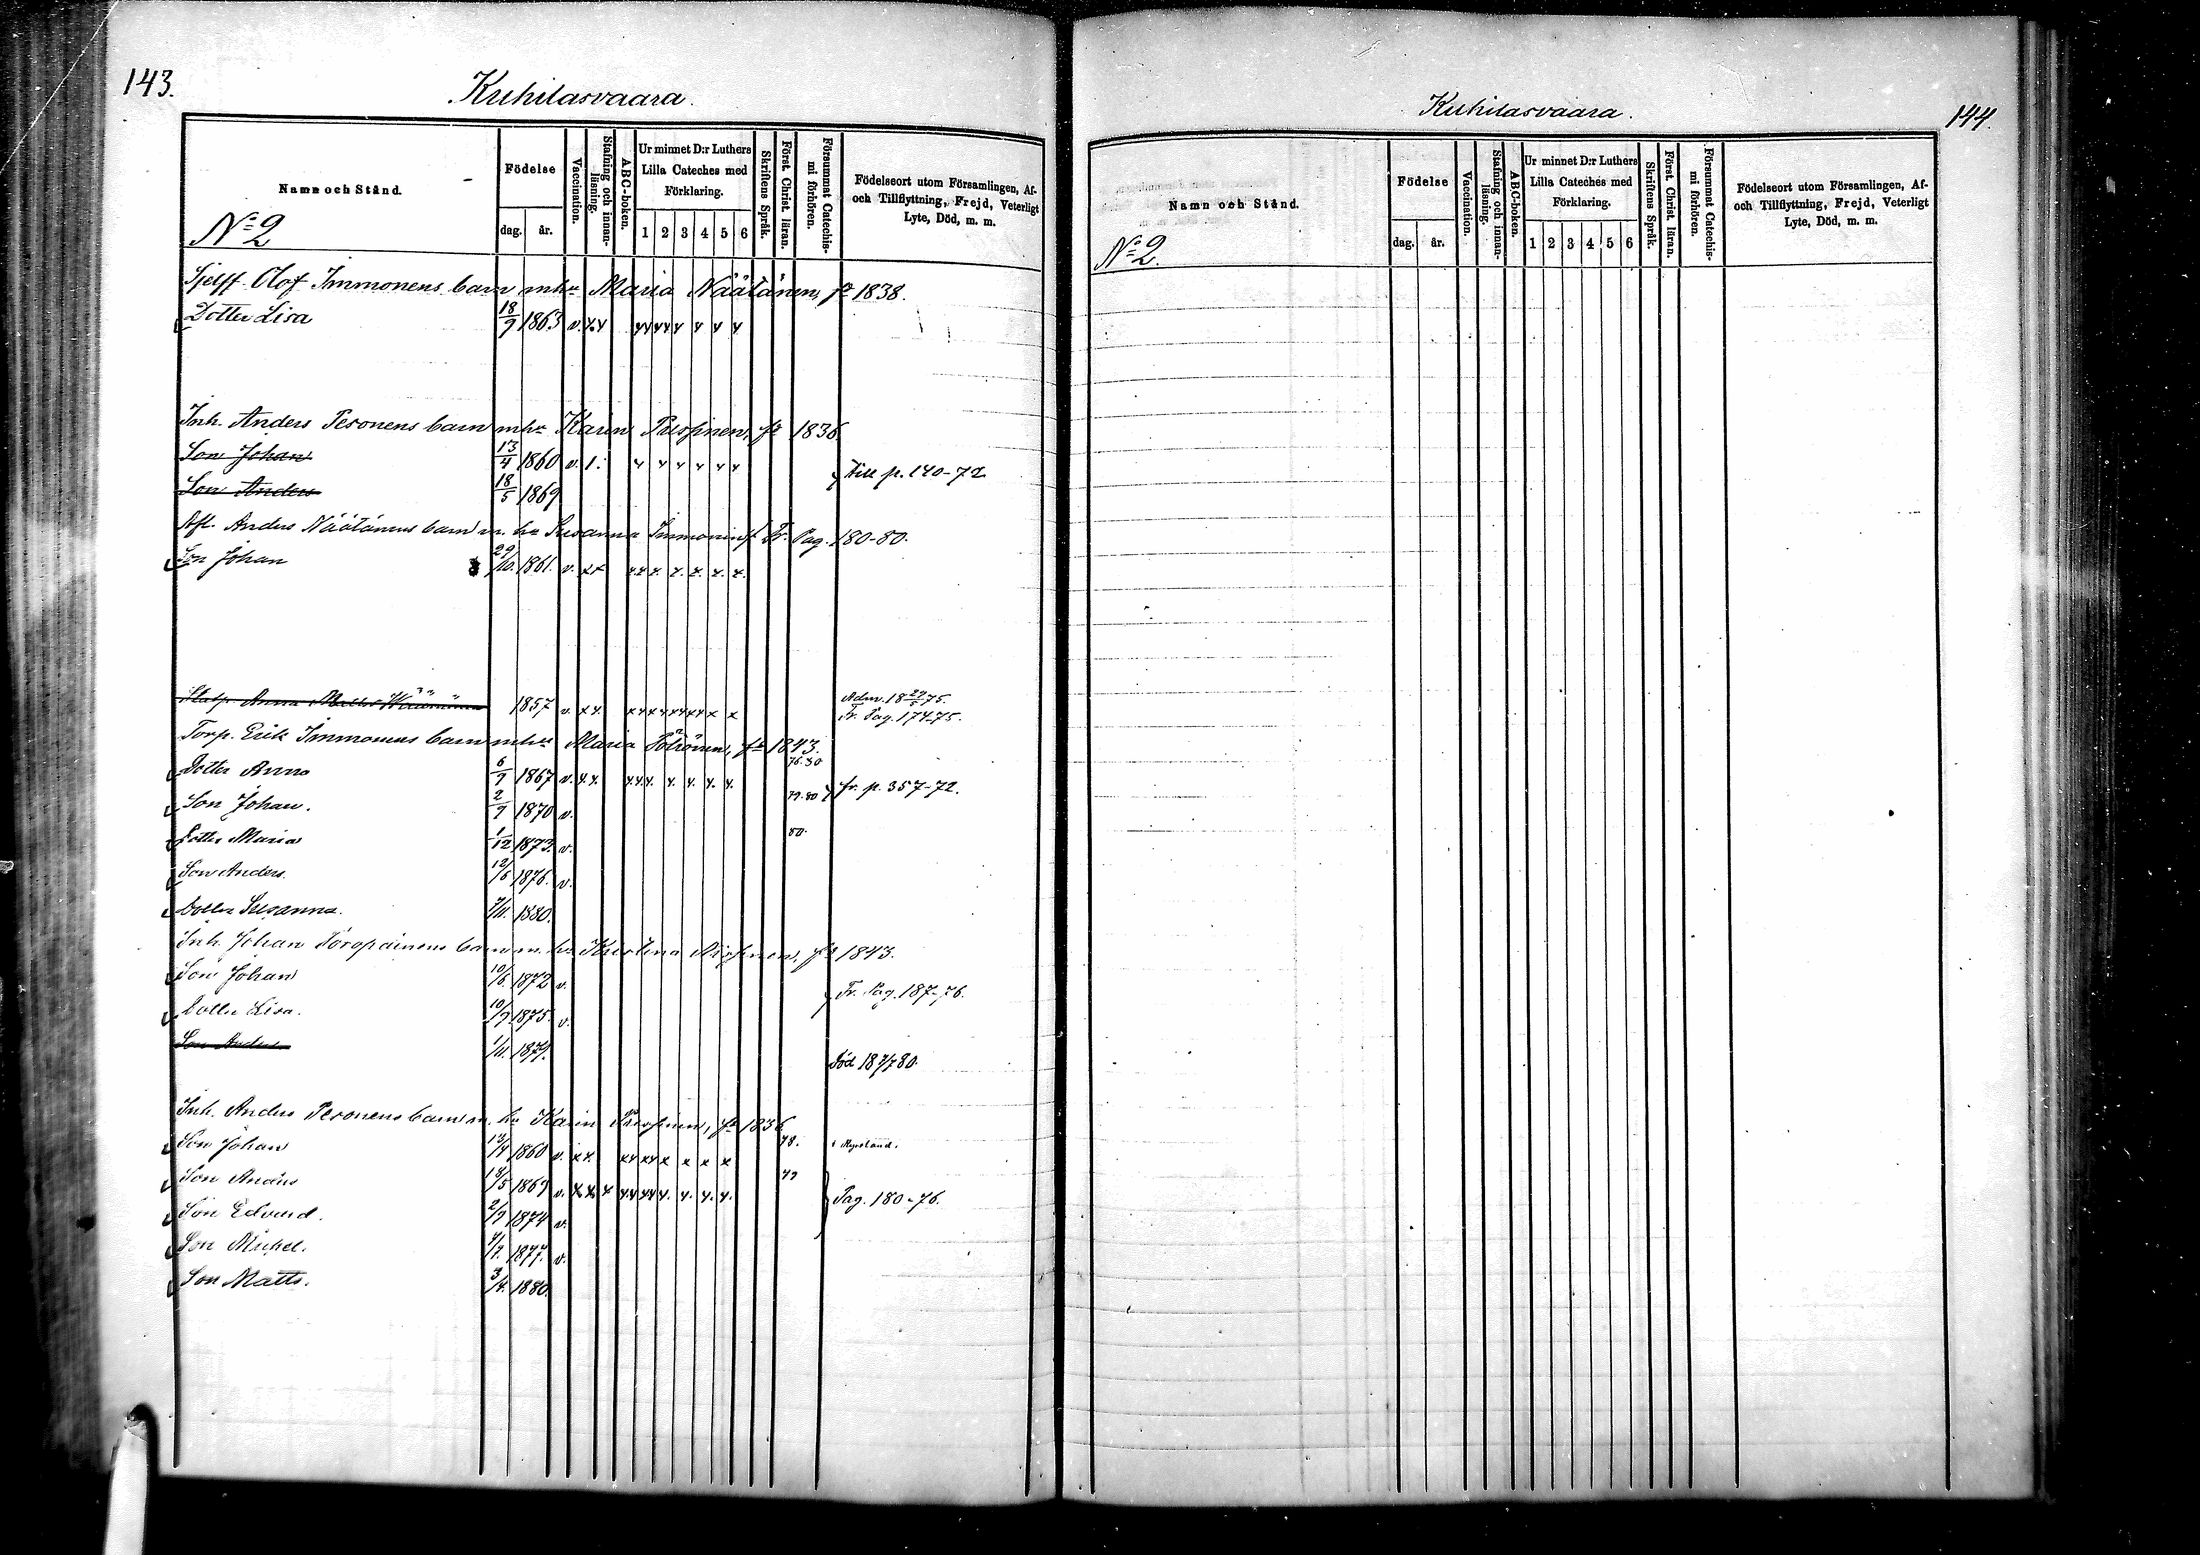 143.
Kuhilasvaara.
Namn och Stånd.
Födelse
dag. år.
Vaccination.
Stafning och innanläsning.
ABC-boken.
Ur minnet D:r Luthers Lilla Cateches med Förklaring.
1 2 3 4 5 6
Skriftens Språk.
Först. Christ. läran.
Försummat Catechismi förhören.
Födelseort utom Församlingen, Af- och Tillflyttning, Frejd, Veterligt Lyte, Död, m. m.
No 2
Sjelff. Olof Immonens barn m hu Maria Näätänen, fe 1838.
Dotter Lisa 18/9 1863 v.
Inh. Anders Pesonens barn m hu Karin fe 1836
Son Johan 13/4 1860 v. 1. Till p. 140-72
Son Anders 18/5 1869
Afl. Anders Näätänens barn m. hu Susanna Immonen Fr. Pag. 180-80.
Son Johan 29/10. 1861. v.
Anna 1857 v. Adm. 18 75.
Fr. Pag. 174-75.
Torp. Erik Immonens barn m hu Maria fe 1843.
Dotter Anna 6/9 1867 v. 76.80
Son Johan. 2/9 1870 v. 79.80 fr. p. 357-72.
Dotter Maria 1/12 1873. v. 80.
Son Anders. 12/6 1876. v.
Dotter Susanna. 1880.
Inh. Johan Toropainens barn m. hu Kristina fe 1843.
Son Johan 10/6. 1872 v.
Dotter Lisa. 10/9 1875. v. Fr. Pag. 187-76.
Son Anders 1/11. 1879. Död 18 7/7 80.
Inh. Anders Pesonens barn m. hu Karin fe 1836
Son Johan 13/4 1860 v. 78. i Ryssland.
Son Anders 18/5 1869 v. 79
Son Edvard. 2/9 1874 v. Pag. 180-76.
Son Mickel. 1877. v.
Son Matts. 3/4. 1880.
Kuhilasvaara.
144.
Namn och Stånd.
Födelse
dag. år.
Vaccination.
Stafning och innanläsning.
ABC-boken.
Ur minnet D:r Luthers Lilla Cateches med Förklaring.
1 2 3 4 5 6
Skriftens Språk.
Först. Christ. läran.
Försummat Catechismi förhören.
Födelseort utom Församlingen, Af- och Tillflyttning, Frejd, Veterligt Lyte, Död, m. m.
No 2.